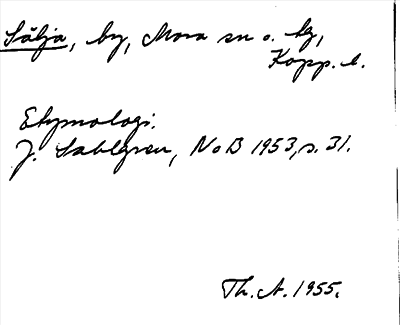 Sälja, by, Mora sn o. tg,
Kopp. l.
Etymologi.
J. Sahlgren, NoB 1953, s. 31.
Th. A. 1955.